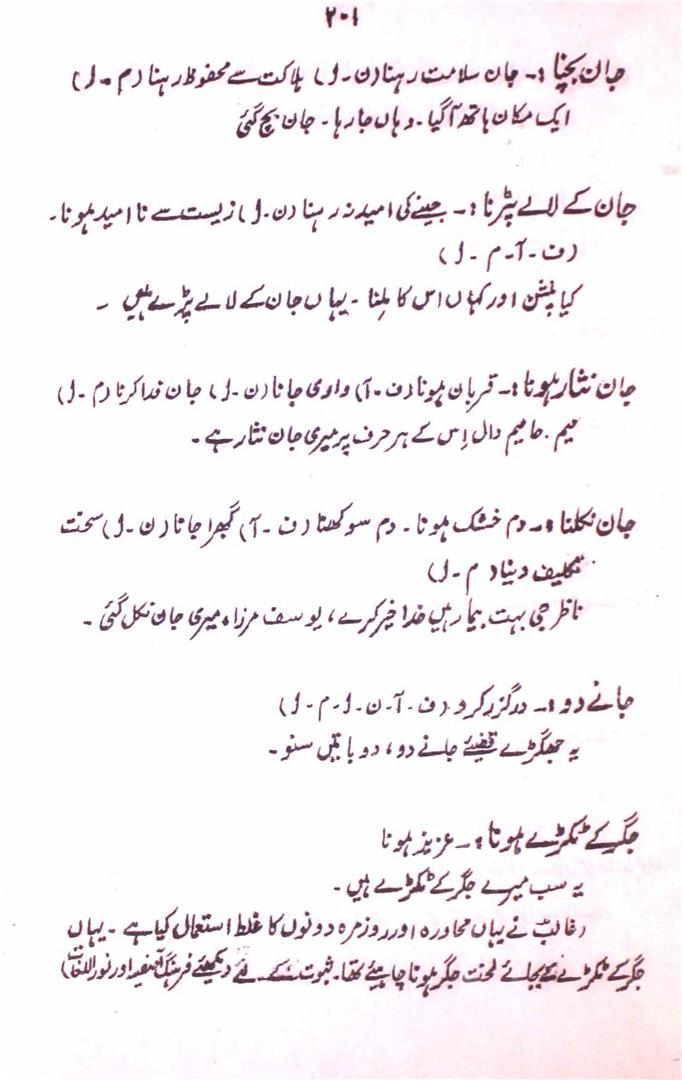 ۲۰۱
جان بچنا :۔ جان سلامت رہنا (ن۔ل) ہلاکت سے محفوظ رہنا (م۔ل)
ایک مکان ہاتھ آگیا۔ وہاں جا رہا۔ جان بچ گئی
جان کے لالے پڑنا :۔ جینے کی امید نہ رہنا (ن۔ل) زیست سے نا امید ہونا۔
(ف۔آ۔م۔ل)
کیا پنشن اور کہاں اس کا ملنا۔ یہاں جان کے لالے پڑے ہیں ۔
جان نثار ہونا :۔ قربان ہونا (ف۔آ) واری جانا (ن۔ل) جان فدا کرنا (م۔ل)
میم۔ حا میم دال اِس کے ہر حرف پر میری جان نثار ہے۔
جان نکلنا :۔ دم خشک ہونا۔ دم سوکھنا (ف۔آ) گھبرا جانا (ن۔ل) سخت
تکلیف دینا (م۔ل)
ناظر جی بہت بیمار ہیں خدا خیر کرے، یوسف مرزا، میری جان نکل گئی۔
جانے دو :۔ درگزر کرد (ف۔آ۔ن۔ل۔م۔ل)
یہ جھگڑے قضیئے جانے دو، دو باتیں سنو۔
جگر کے ٹکڑے ہونا :۔ عزیز ہونا
یہ سب میرے جگر کے ٹکڑے ہیں۔
(غالب نے یہاں محاورہ اور روزمرہ دونوں کا غلط استعمال کیا ہے۔ یہاں
جگر کے ٹکڑے کے بجائے لخت جگر ہونا چاہیئے تھا۔ ثبوت کے لئے دیکھئے فرہنگ آصفیہ اور نور اللغات)